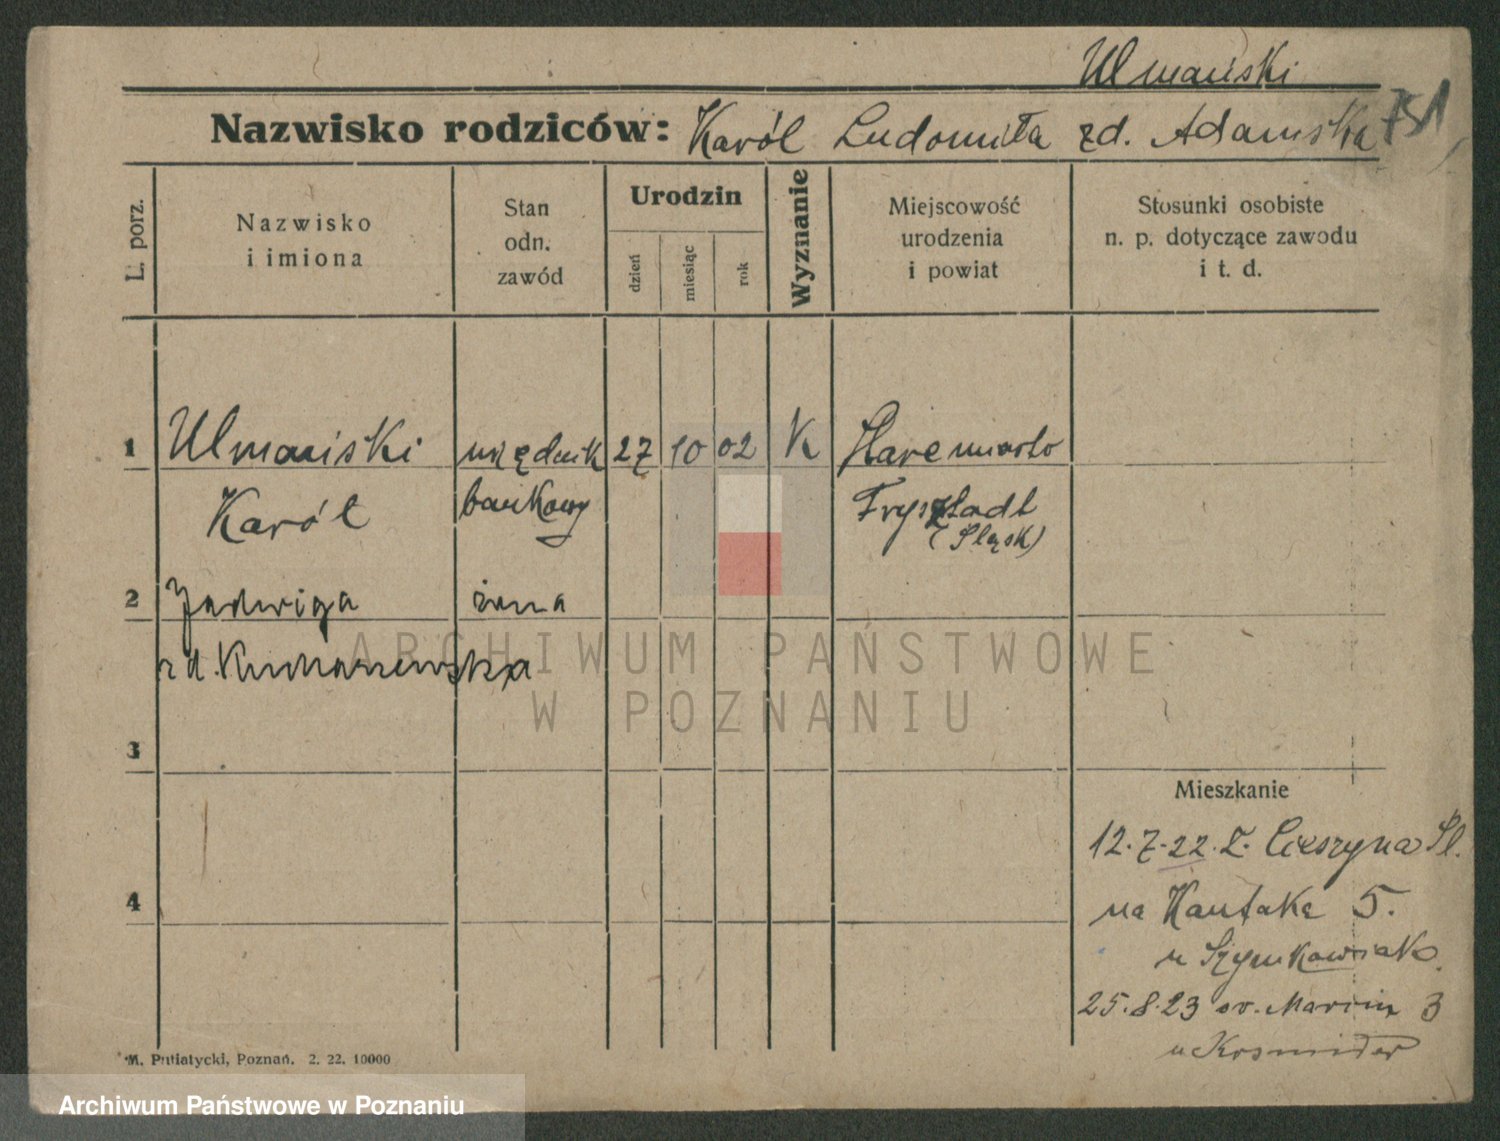 Ulmański
Nazwisko rodziców: Karól Ludomiła zd. Adamska 751
L. porz.
Nazwisko
i imiona
Stan
odn.
zawód
Urodzin
dzień
miesiąc
rok
Wyznanie
Miejscowość
urodzenia
i powiat
Stosunki osobiste
n. p. dotyczące zawodu
i t. d.
1 Ulmański urzędnik 27 10 02 K Stare miasto
Karól bankowy Frysztadt
(Śląsk)
2 Jadwiga żona
zd.
3
Mieszkanie
12.7.22. Z. Cieszyna Śl.
4
na Kantaka 5.
u Szymkowiak
25.8.23 św. Marcin 3
u Kosmider
M. Putiatycki, Poznań. 2. 22. 10000
ARCHIWUM PAŃSTWOWE
W POZNANIU
Archiwum Państwowe w Poznaniu